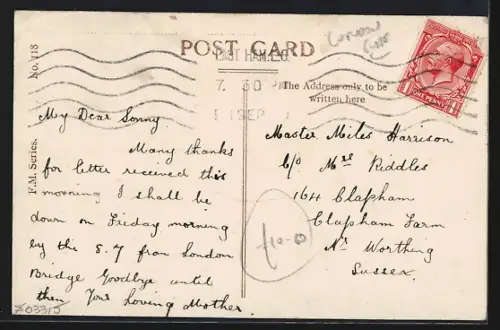 LONDON
POST CARD
EAST HAM. E.6.
7. 30 PM
1 SEP
The Address only to be
written here
ONE PENNY
F.M. Series. No. 118
My Dear Sonny
Many thanks
for letter received this
morning I shall be
down on Friday morning
by the 8.7 from London
Bridge Goodbye until
then Your Loving Mother.
Master Miles Harrison
C/o Mrs Riddles
164 Clapham
Clapham Farm
Nr Worthing
Sussex.
£10-0
X03315